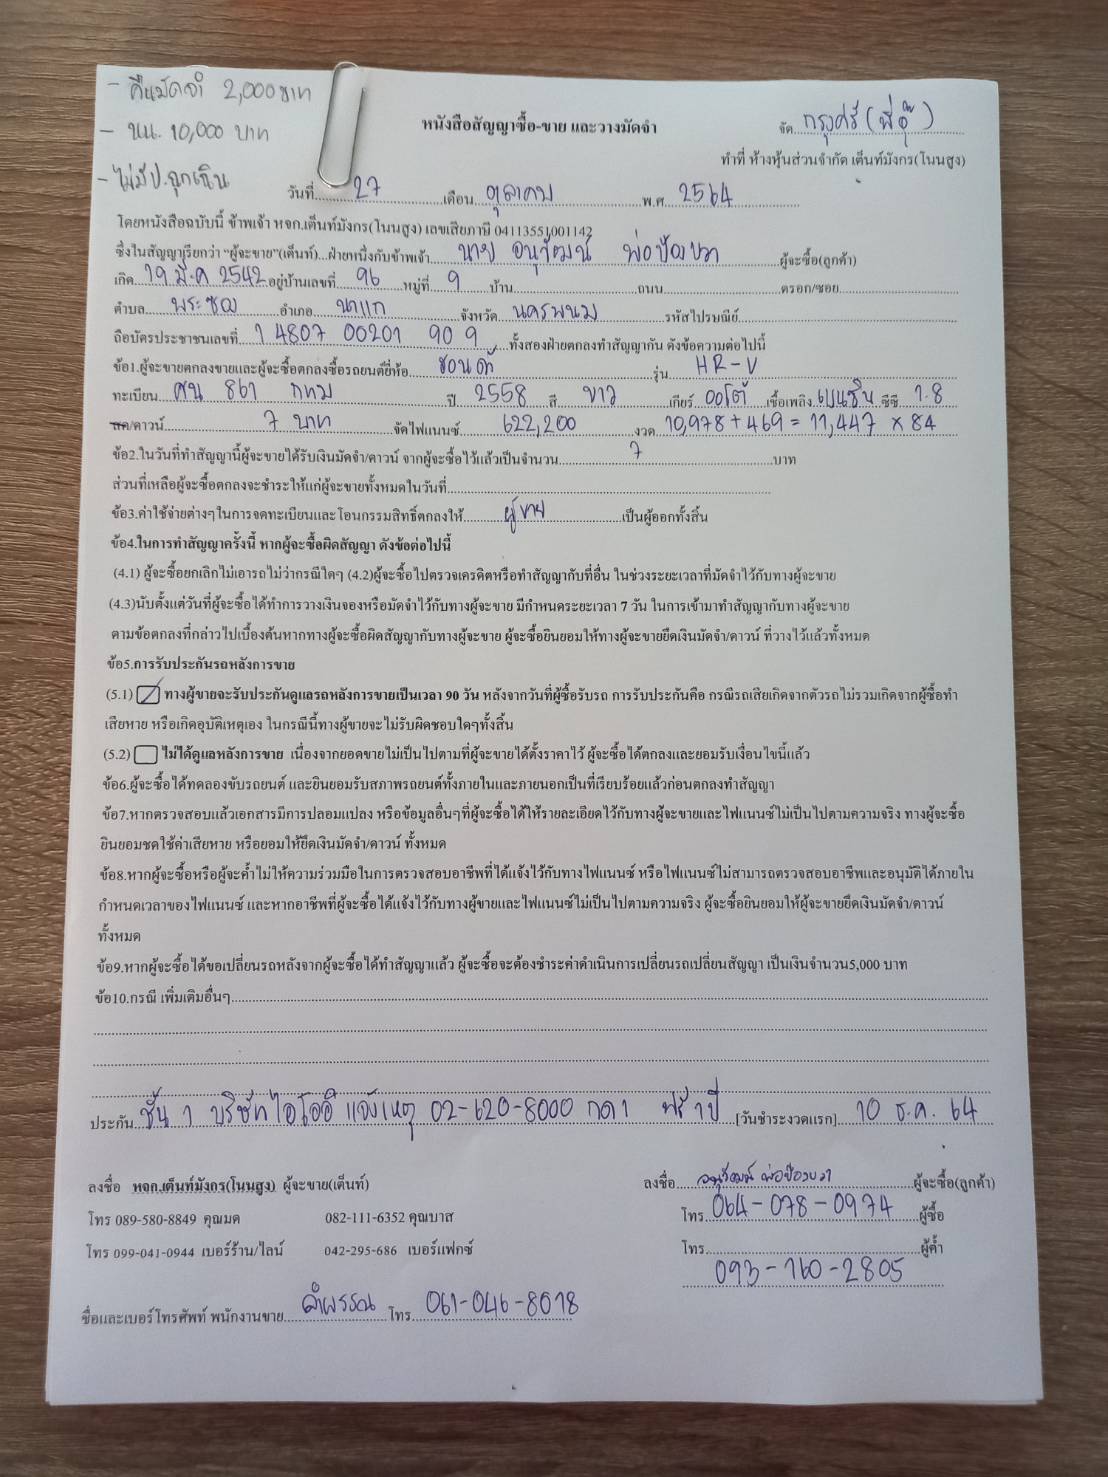 - คืนมัดจำ 2,000 บาท
- นน. 10,000 บาท
- ไม่มีป.ฉุกเฉิน
หนังสือสัญญาซื้อ-ขาย และวางมัดจำ
จัด กรุงศรี (พี่อุ๊)
ทำที่ ห้างหุ้นส่วนจำกัด เต็นท์มังกร(โนนสูง)
วันที่ 27 เดือน ตุลาคม พ.ศ. 2564
โดยหนังสือฉบับนี้ ข้าพเจ้า หจก.เต็นท์มังกร(โนนสูง) เลขเสียภาษี 04113551001142
ซึ่งในสัญญาเรียกว่า "ผู้จะขาย"(เต็นท์)...ฝ่ายหนึ่งกับข้าพเจ้า นาย อนุวัฒน์ พ่อป้องขวา ผู้จะซื้อ(ลูกค้า)
เกิด 19 มี.ค 2542 อยู่บ้านเลขที่ 96 หมู่ที่ 9 บ้าน ถนน ตรอก/ซอย
ตำบล พระซอง อำเภอ นาแก จังหวัด นครพนม รหัสไปรษณีย์
ถือบัตรประชาชนเลขที่ 1 4807 00201 90 9 ทั้งสองฝ่ายตกลงทำสัญญากัน ดังข้อความต่อไปนี้
ข้อ1.ผู้จะขายตกลงขายและผู้จะซื้อตกลงซื้อรถยนต์ยี่ห้อ ฮอนด้า รุ่น HR-V
ทะเบียน 861 กทม ปี 2558 สี ขาว เกียร์ ออโต้ เชื้อเพลิง เบนซิน ซีซี 1.8
สด/ดาวน์ 7 บาท จัดไฟแนนซ์ 622,200 งวด 10,978 + 469 = 11,447 × 84
ข้อ2.ในวันที่ทำสัญญานี้ผู้จะขายได้รับเงินมัดจำ/ดาวน์ จากผู้จะซื้อไว้แล้วเป็นจำนวน 7 บาท
ส่วนที่เหลือผู้จะซื้อตกลงจะชำระให้แก่ผู้จะขายทั้งหมดในวันที่
ข้อ3.ค่าใช้จ่ายต่างๆในการจดทะเบียนและโอนกรรมสิทธิ์ตกลงให้ ผู้ขาย เป็นผู้ออกทั้งสิ้น
ข้อ4.ในการทำสัญญาครั้งนี้ หากผู้จะซื้อผิดสัญญา ดังข้อต่อไปนี้
(4.1) ผู้จะซื้อยกเลิกไม่เอารถไม่ว่ากรณีใดๆ (4.2)ผู้จะซื้อไปตรวจเครดิตหรือทำสัญญากับที่อื่น ในช่วงระยะเวลาที่มัดจำไว้กับทางผู้จะขาย
(4.3)นับตั้งแต่วันที่ผู้จะซื้อได้ทำการวางเงินจองหรือมัดจำไว้กับทางผู้จะขาย มีกำหนดระยะเวลา 7 วัน ในการเข้ามาทำสัญญากับทางผู้จะขาย
ตามข้อตกลงที่กล่าวไปเบื้องต้นหากทางผู้จะซื้อผิดสัญญากับทางผู้จะขาย ผู้จะซื้อยินยอมให้ทางผู้จะขายยึดเงินมัดจำ/ดาวน์ ที่วางไว้แล้วทั้งหมด
ข้อ5.การรับประกันรถหลังการขาย
(5.1) ทางผู้ขายจะรับประกันดูแลรถหลังการขายเป็นเวลา 90 วัน หลังจากวันที่ผู้ซื้อรับรถ การรับประกันคือ กรณีรถเสียเกิดจากตัวรถไม่รวมเกิดจากผู้ซื้อทำ
เสียหาย หรือเกิดอุบัติเหตุเอง ในกรณีนี้ทางผู้ขายจะไม่รับผิดชอบใดๆทั้งสิ้น
(5.2) ไม่ได้ดูแลหลังการขาย เนื่องจากยอดขายไม่เป็นไปตามที่ผู้จะขายได้ตั้งราคาไว้ ผู้จะซื้อได้ตกลงและยอมรับเงื่อนไขนี้แล้ว
ข้อ6.ผู้จะซื้อได้ทดลองขับรถยนต์ และยินยอมรับสภาพรถยนต์ทั้งภายในและภายนอกเป็นที่เรียบร้อยแล้วก่อนตกลงทำสัญญา
ข้อ7.หากตรวจสอบแล้วเอกสารมีการปลอมแปลง หรือข้อมูลอื่นๆที่ผู้จะซื้อได้ให้รายละเอียดไว้กับทางผู้จะขายและไฟแนนซ์ไม่เป็นไปตามความจริง ทางผู้จะซื้อ
ยินยอมชดใช้ค่าเสียหาย หรือยอมให้ยึดเงินมัดจำ/ดาวน์ ทั้งหมด
ข้อ8.หากผู้จะซื้อหรือผู้จะค้ำไม่ให้ความร่วมมือในการตรวจสอบอาชีพที่ได้แจ้งไว้กับทางไฟแนนซ์ หรือไฟแนนซ์ไม่สามารถตรวจสอบอาชีพและอนุมัติได้ภายใน
กำหนดเวลาของไฟแนนซ์ และหากอาชีพที่ผู้จะซื้อได้แจ้งไว้กับทางผู้ขายและไฟแนนซ์ไม่เป็นไปตามความจริง ผู้จะซื้อยินยอมให้ผู้จะขายยึดเงินมัดจำ/ดาวน์
ทั้งหมด
ข้อ9.หากผู้จะซื้อได้ขอเปลี่ยนรถหลังจากผู้จะซื้อได้ทำสัญญาแล้ว ผู้จะซื้อจะต้องชำระค่าดำเนินการเปลี่ยนรถเปลี่ยนสัญญา เป็นเงินจำนวน5,000 บาท
ข้อ10.กรณี เพิ่มเติมอื่นๆ
ประกัน ชั้น 1 บริษัทไอโออิ แจ้งเหตุ 02-620-8000 กด 1 ฟรี 1 ปี [วันชำระงวดแรก] 10 ธ.ค. 64
ลงชื่อ หจก.เต็นท์มังกร(โนนสูง) ผู้จะขาย(เต็นท์) ลงชื่อ อนุวัฒน์ พ่อป้องขวา ผู้จะซื้อ(ลูกค้า)
โทร 089-580-8849 คุณมด 082-111-6352 คุณบาส โทร 064-078-0974 ผู้ซื้อ
โทร 099-041-0944 เบอร์ร้าน/ไลน์ 042-295-686 เบอร์แฟกซ์ โทร ผู้ค้ำ
093-160-2805
ชื่อและเบอร์โทรศัพท์ พนักงานขาย ลำพรรณ โทร 061-046-8018